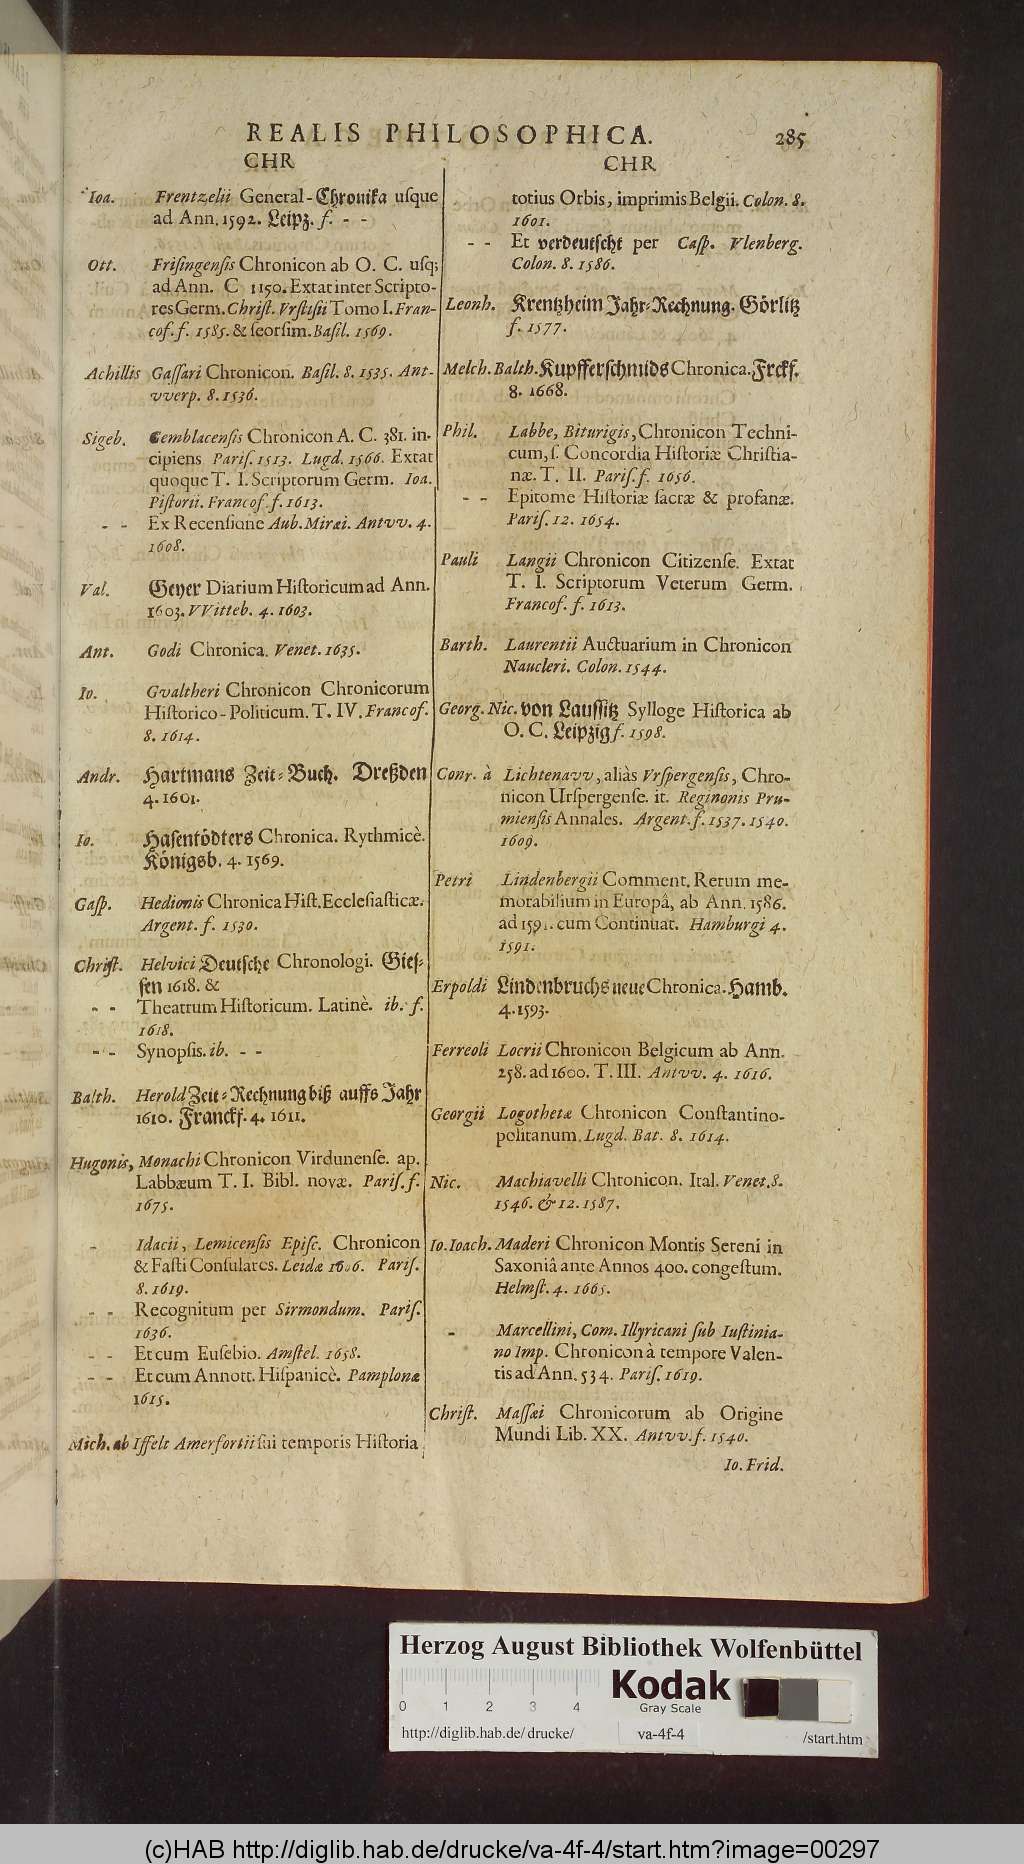 REALIS PHILOSOPHICA. 285
CHR
Ioa. Frentzelii General-Chronika uſque
ad Ann. 1592. Leipz. f. - -
Ott. Friſingenſis Chronicon ab O. C. uſq;
ad Ann. C 1150. Extat inter Scripto-
res Germ. Chriſt. Vrſtiſii Tomo I. Fran-
cof. f. 1585. & ſeorſim. Baſil. 1569.
Achillis Gaſſari Chronicon. Baſil. 8. 1535. Ant-
vverp. 8. 1536.
Sigeb. Gemblacenſis Chronicon A. C. 381. in-
cipiens Pariſ. 1513. Lugd. 1566. Extat
quoque T. I. Scriptorum Germ. Ioa.
Piſtorii. Francof. f. 1613.
- - Ex Recenſione Aub. Miræi. Antvv. 4.
1608.
Val. Geyer Diarium Hiſtoricum ad Ann.
1603. VVitteb. 4. 1603.
Ant. Godi Chronica. Venet. 1635.
Io. Gvaltheri Chronicon Chronicorum
Hiſtorico-Politicum. T. IV. Francof.
8. 1614.
Andr. Hartmans Zeit-Buch. Dreßden
4. 1601.
Io. Haſentödters Chronica. Rythmicè.
Königsb. 4. 1569.
Gaſp. Hedionis Chronica Hiſt. Eccleſiaſticæ.
Argent. f. 1530.
Chriſt. Helvici Deutſche Chronologi. Gieſ-
ſen 1618. &
- - Theatrum Hiſtoricum. Latinè. ib. f.
1618.
- - Synopſis. ib. - -
Balth. Herold Zeit-Rechnung biß auffs Jahr
1610. Franckf. 4. 1611.
Hugonis, Monachi Chronicon Virdunenſe. ap.
Labbæum T. I. Bibl. novæ. Pariſ. f.
1675.
- Idacii, Lemicenſis Epiſc. Chronicon
& Faſti Conſulares. Leidæ 1606. Pariſ.
8. 1619.
- - Recognitum per Sirmondum. Pariſ.
1636.
- - Et cum Euſebio. Amſtel. 1658.
- - Et cum Annott. Hiſpanicè. Pamplonæ
1615.
Mich. ab Iſſelt Amerfortii ſui temporis Hiſtoria
CHR
totius Orbis, imprimis Belgii. Colon. 8.
1601.
- - Et verdeutſcht per Caſp. Vlenberg.
Colon. 8. 1586.
Leonh. Krentzheim Jahr-Rechnung. Görlitz
f. 1577.
Melch. Balth. Kupfferſchmids Chronica. Frckf.
8. 1668.
Phil. Labbe, Biturigis, Chronicon Techni-
cum, ſ. Concordia Hiſtoriæ Chriſtia-
næ. T. II. Pariſ. f. 1656.
- - Epitome Hiſtoriæ ſacræ & profanæ.
Pariſ. 12. 1654.
Pauli Langii Chronicon Citizenſe. Extat
T. I. Scriptorum Veterum Germ.
Francof. f. 1613.
Barth. Laurentii Auctuarium in Chronicon
Naucleri. Colon. 1544.
Georg. Nic. von Lauſſitz Sylloge Hiſtorica ab
O. C. Leipzig f. 1598.
Conr. à Lichtenavv, aliàs Vrſpergenſis, Chro-
nicon Urſpergenſe. it. Reginonis Pru-
mienſis Annales. Argent. f. 1537. 1540.
1609.
Petri Lindenbergii Comment. Rerum me-
morabilium in Europâ, ab Ann. 1586.
ad 1591. cum Continuat. Hamburgi 4.
1591.
Erpoldi Lindenbruchs neue Chronica. Hamb.
4. 1593.
Ferreoli Locrii Chronicon Belgicum ab Ann.
258. ad 1600. T. III. Antvv. 4. 1616.
Georgii Logothetæ Chronicon Conſtantino-
politanum. Lugd. Bat. 8. 1614.
Nic. Machiavelli Chronicon. Ital. Venet. 8.
1546. & 12. 1587.
Io. Ioach. Maderi Chronicon Montis Sereni in
Saxoniâ ante Annos 400. congeſtum.
Helmſt. 4. 1665.
- Marcellini, Com. Illyricani ſub Iuſtinia-
no Imp. Chronicon à tempore Valen-
tis ad Ann. 534. Pariſ. 1619.
Chriſt. Maſſæi Chronicorum ab Origine
Mundi Lib. XX. Antvv. f. 1540.
Io. Frid.
Herzog August Bibliothek Wolfenbüttel
0 1 2 3 4
Kodak
Gray Scale
http://diglib.hab.de/drucke/ va-4f-4 /start.htm
(c)HAB http://diglib.hab.de/drucke/va-4f-4/start.htm?image=00297